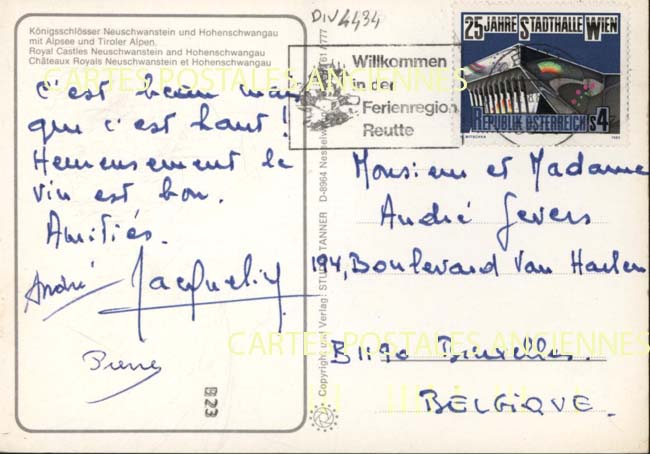 Königsschlösser Neuschwanstein und Hohenschwangau
mit Alpsee und Tiroler Alpen.
Royal Castles Neuschwanstein and Hohenschwangau
Châteaux Royals Neuschwanstein et Hohenschwangau
c'est beau mais
que c'est haut!
Heureusement le
vin est bon.
Amitiés.
André Jacqueline
Pierre
B23
Copyright und Verlag: TANNER D-8964 Nesselwang
DIV 4434
Willkommen
in der
Ferienregion
Reutte
25 JAHRE STADTHALLE WIEN
REPUBLIK ÖSTERREICH S4
Monsieur et Madame
André Gevers
194, Boulevard Van Haelen
B 1190 Bruxelles.
BELGIQUE.
CARTES POSTALES ANCIENNES
CARTES POSTALES ANCIENNES